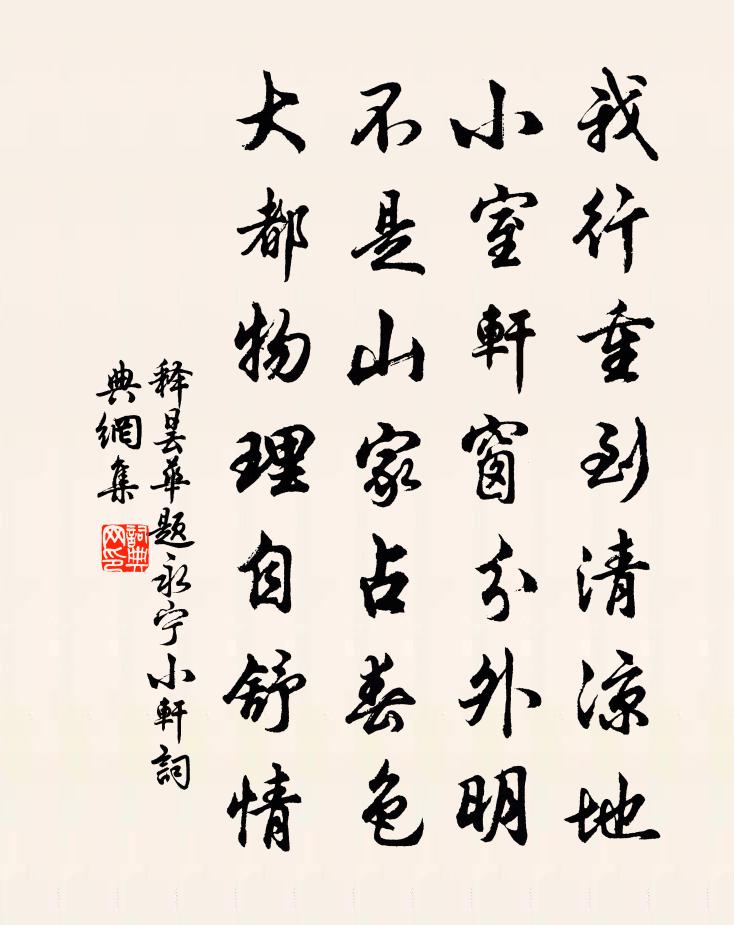 我行重到清凉地
小室軒窗分外明
不是山家占春色
大都物理自舒情
释昙華题永宁小軒詞
典網集
詞典網印